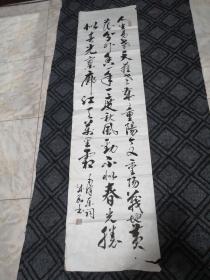 人生易老天難老歲々重陽今又重陽戰地黄
花分外香一年一度秋風勁不似春光勝
似春光寥廓江天萬里霜 毛澤東詞